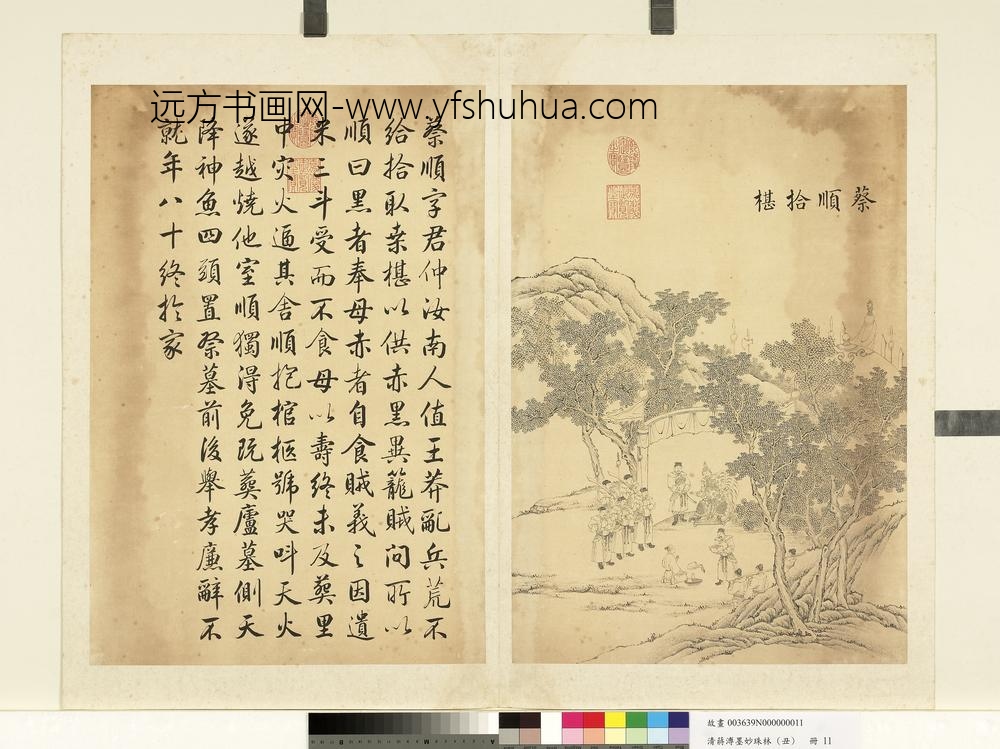 远方书画网-www.yfshuhua.com
蔡順拾椹
蔡順字君仲汝南人值王莽亂兵荒不
給拾取桒椹以供赤黑異籠賊問所以
順曰黑者奉母赤者自食賊義之因遺
米三斗受而不食母以壽終未及葬里
中灾火逼其舍順抱棺柩號哭呌天火
遂越燒他室順獨得免既葬廬墓側天
降神魚四頭置祭墓前後舉孝廉辭不
就年八十終於家
故畫 003639N000000011
清蔣溥墨妙珠林（丑） 冊 11